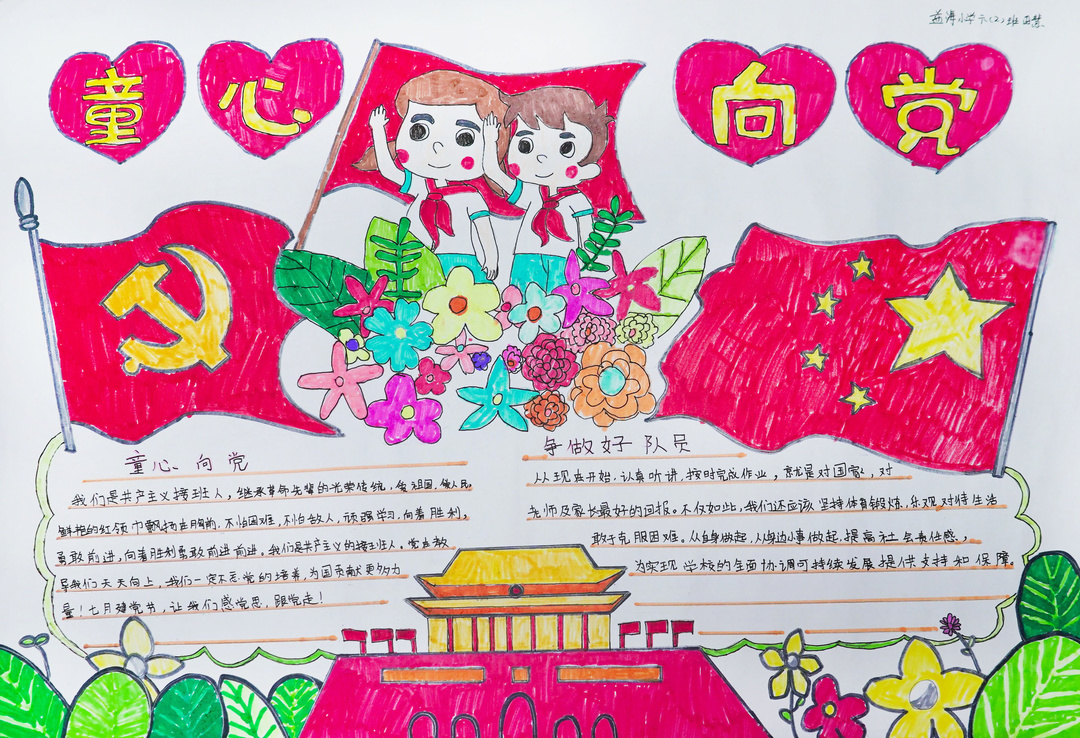 益海小学六(2)班
童心向党
童心向党
我们是共产主义接班人，继承革命先辈的光荣传统，爱祖国，爱人民，
鲜艳的红领巾飘扬在胸前，不怕困难，不怕敌人，顽强学习，向着胜利，
勇敢前进，向着胜利勇敢前进前进。我们是共产主义的接班人。党点教
导我们天天向上，我们一定不忘党的培养，为国贡献更多力
量！七月建党节，让我们感党恩，跟党走！
争做好队员
从现在开始，认真听讲，按时完成作业，就是对国家，对
老师及家长最好的回报。不仅如此，我们还应该坚持体育锻炼，乐观对待生活
敢于克服困难。从自身做起，从身边小事做起，提高社会责任感，，
为实现学校的全面协调可持续发展提供支持和保障。